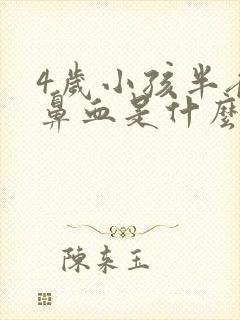 4歲小孩半
鼻血是什麼
陳来玉